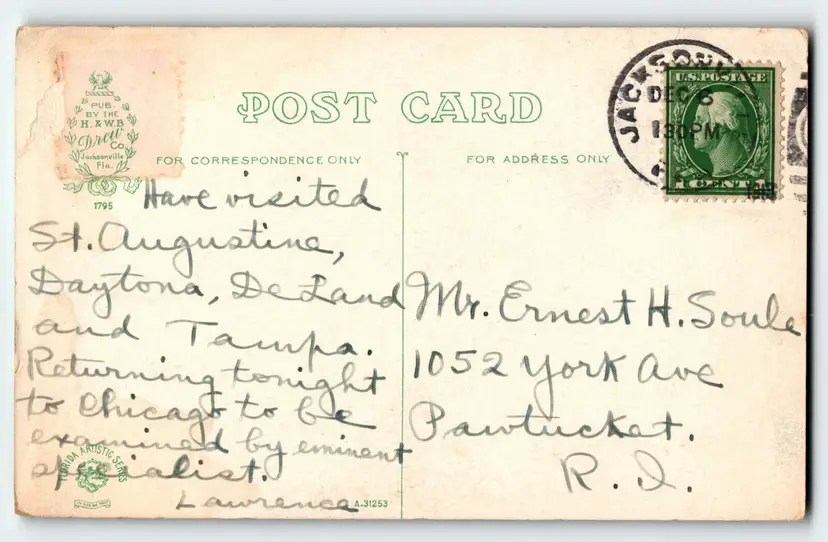 POST CARD
PUB.
BY THE
H. & W.B.
Drew
Co.
Jacksonville
Fla.
1795
FOR CORRESPONDENCE ONLY
FOR ADDRESS ONLY
DEC 8
130PM
U.S. POSTAGE
1 CENT 1
Have visited
St. Augustine,
Daytona, De Land
and Tampa.
Returning tonight
to Chicago to be
examined by eminent
specialist.
Lawrence
Mr. Ernest H. Soule
1052 York Ave
Pawtucket.
R. I.
FLORIDA ARTISTIC SERIES
A-31253